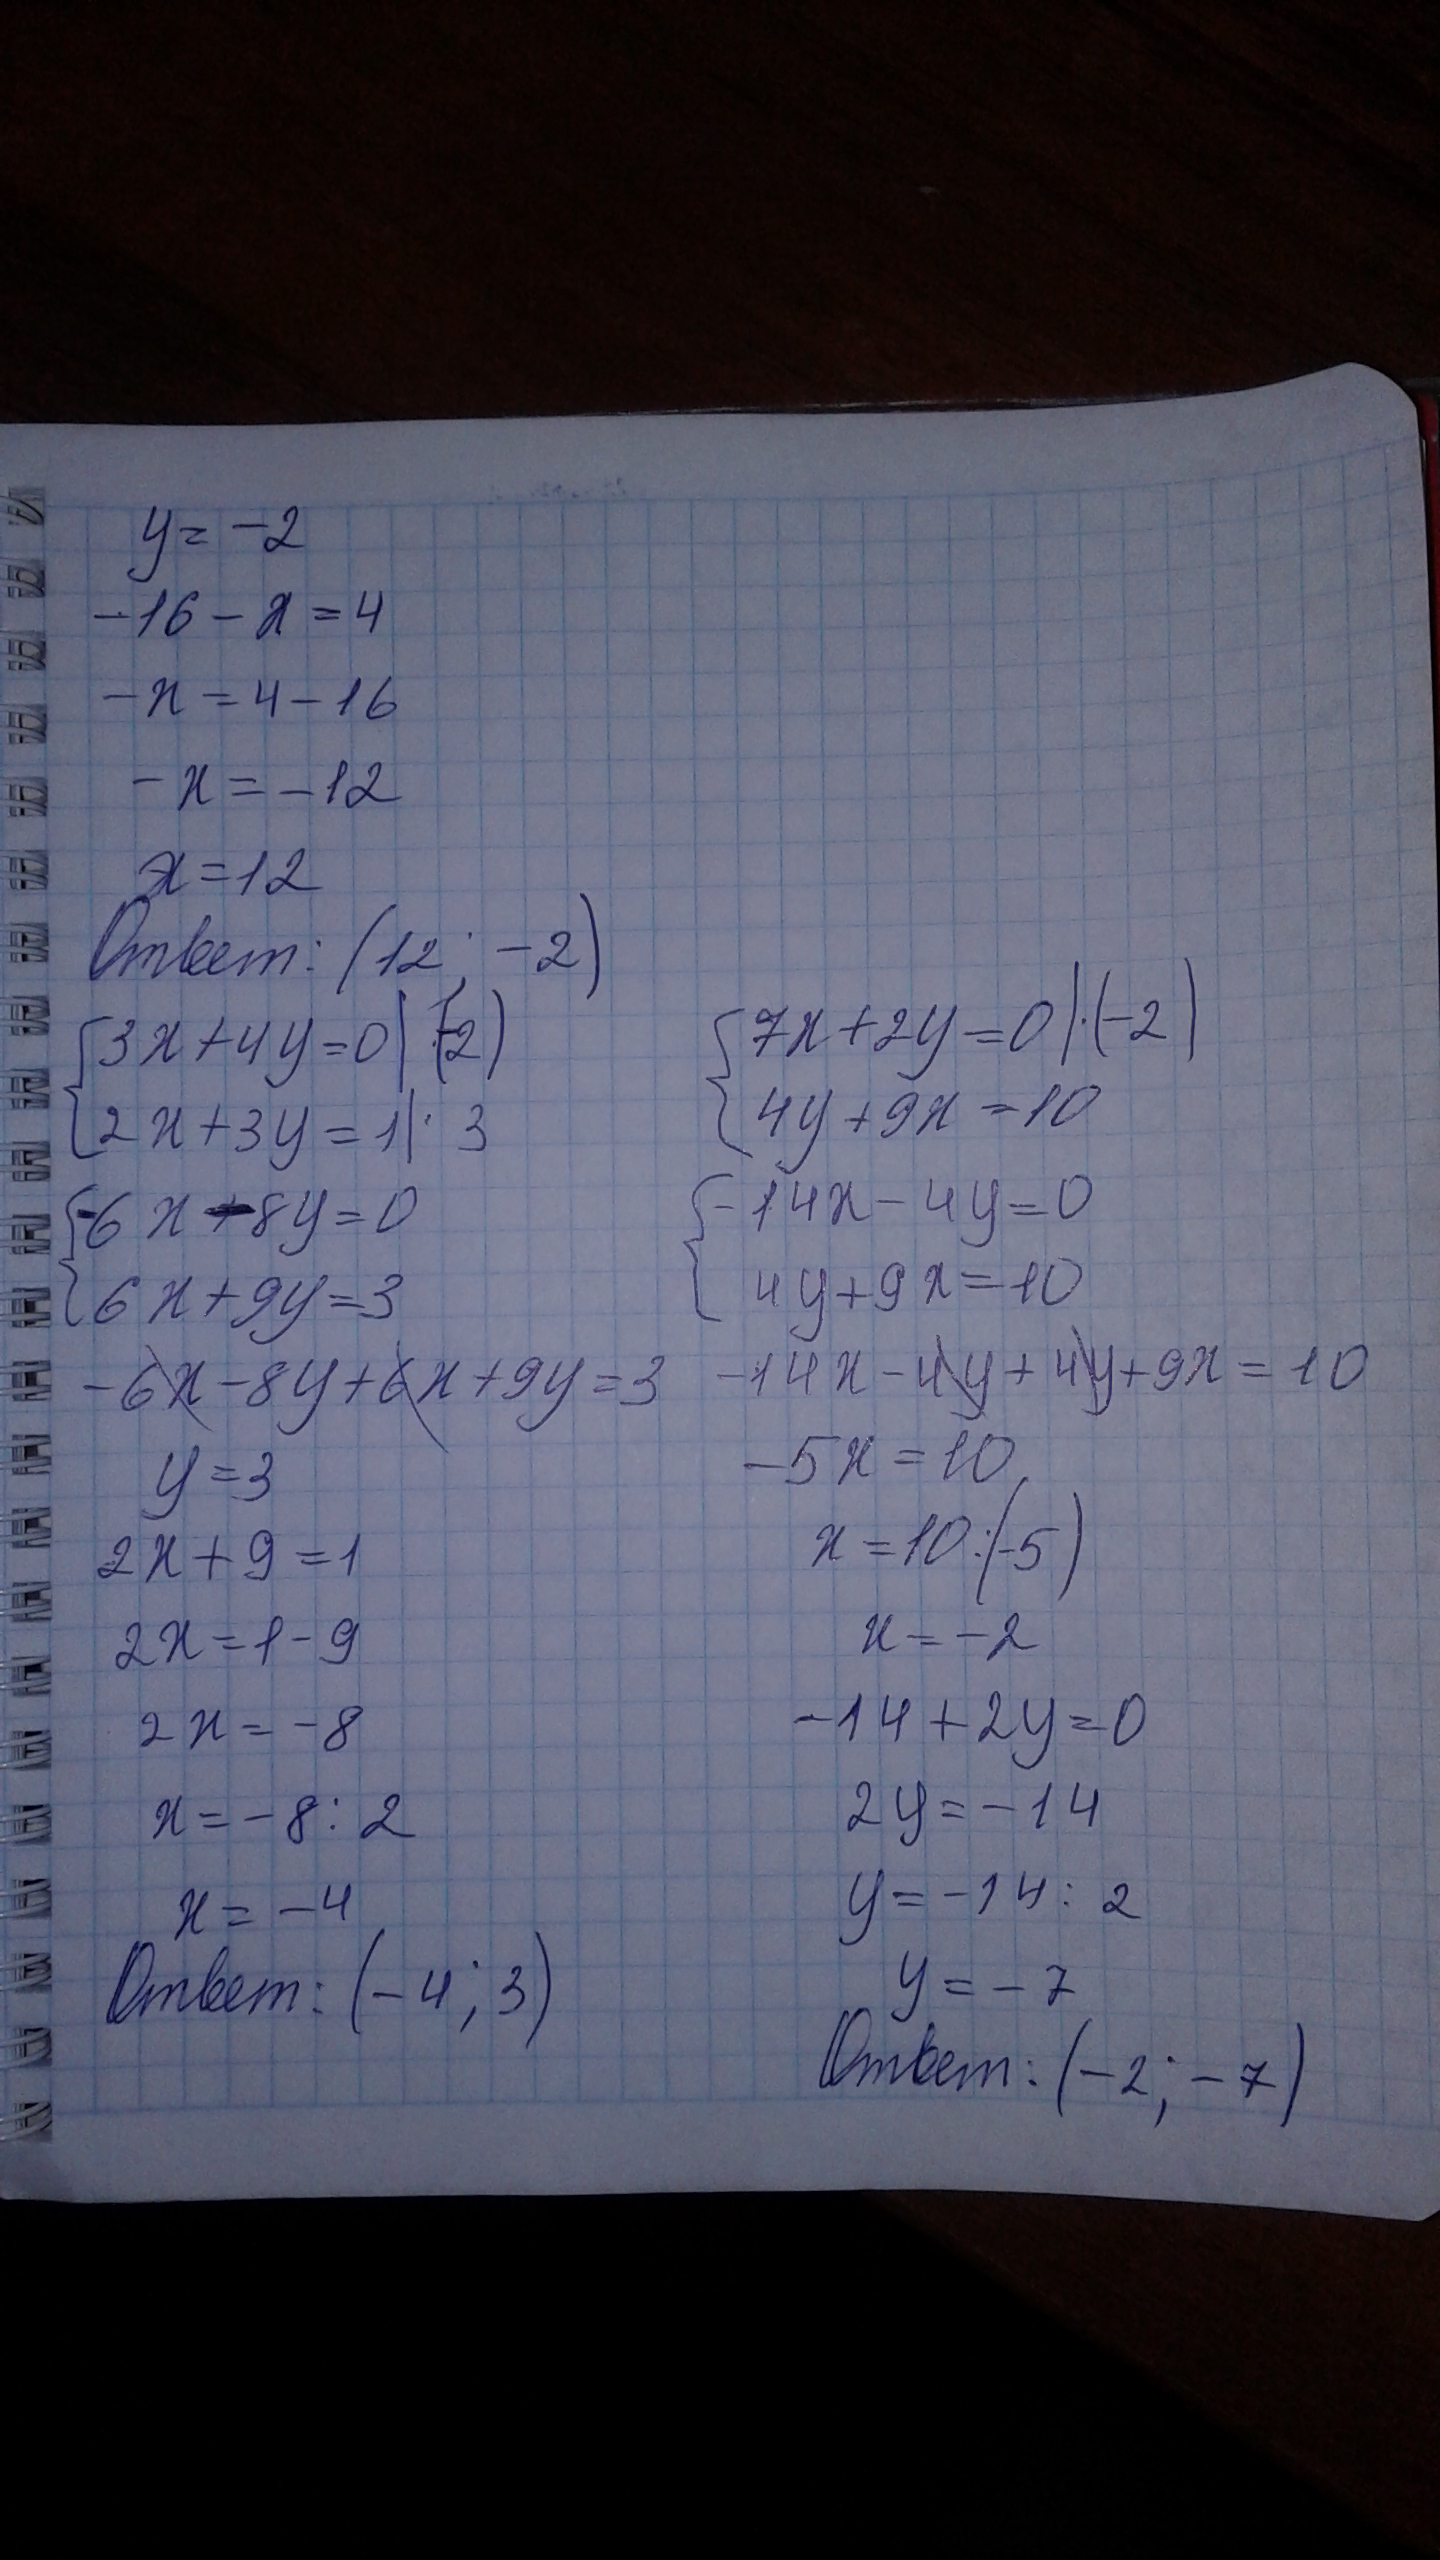 y = -2
-16 - x = 4
-x = 4 - 16
-x = -12
x = 12
Ответ: (12; -2)
3x + 4y = 0 | ·(-2)
2x + 3y = 1 | · 3
-6x - 8y = 0
6x + 9y = 3
-6x - 8y + 6x + 9y = 3
y = 3
2x + 9 = 1
2x = 1 - 9
2x = -8
x = -8 : 2
x = -4
Ответ: (-4; 3)
7x + 2y = 0 | ·(-2)
4y + 9x = 10
-14x - 4y = 0
4y + 9x = 10
-14x - 4y + 4y + 9x = 10
-5x = 10
x = 10 : (-5)
x = -2
-14 + 2y = 0
2y = -14
y = -14 : 2
y = -7
Ответ: (-2; -7)